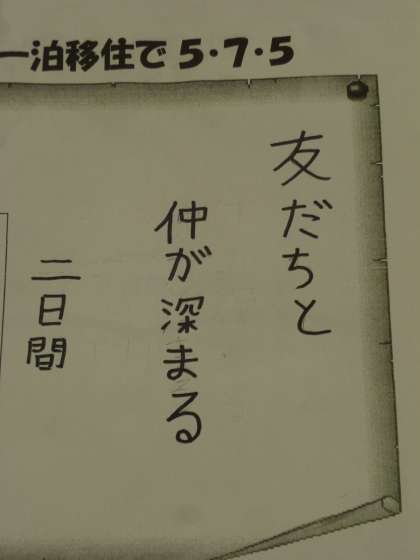 一泊移住で5・7・5
友だちと
仲が深まる
二日間